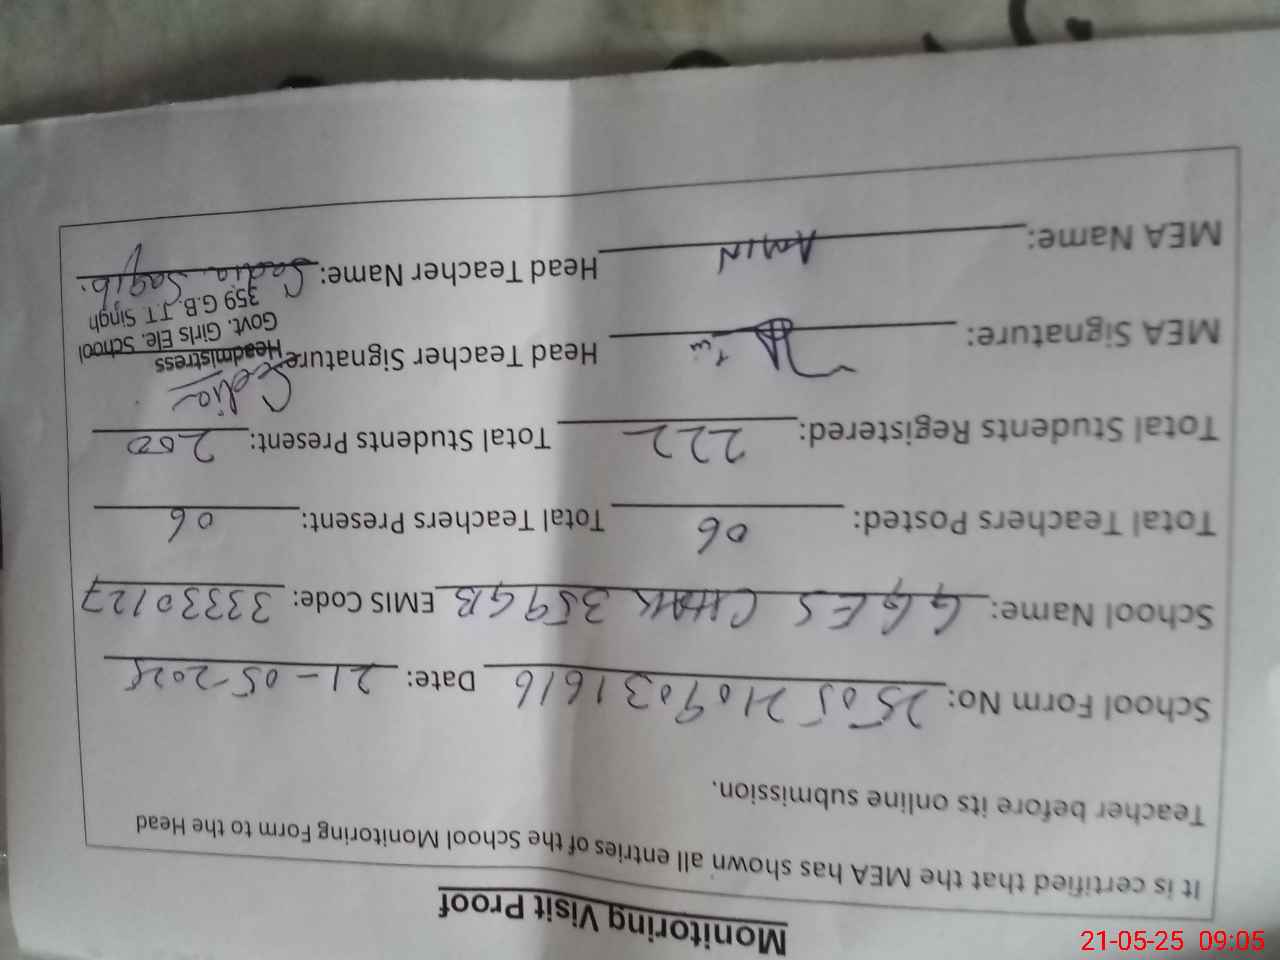 Monitoring Visit Proof
It is certified that the MEA has shown all entries of the School Monitoring Form to the Head
Teacher before its online submission.
School Form No: 25052109031616 Date: 21-05-2025
School Name: GGES CHAK 359 GB EMIS Code: 33330127
Total Teachers Posted: 06 Total Teachers Present: 06
Total Students Registered: 222 Total Students Present: 200
Sadia
MEA Signature: Head Teacher Signature Headmistress
Govt. Girls Ele. School
359 G.B. J.T. Singh
MEA Name: AMIN Head Teacher Name: Sadia Saqib.
21-05-25 09:05